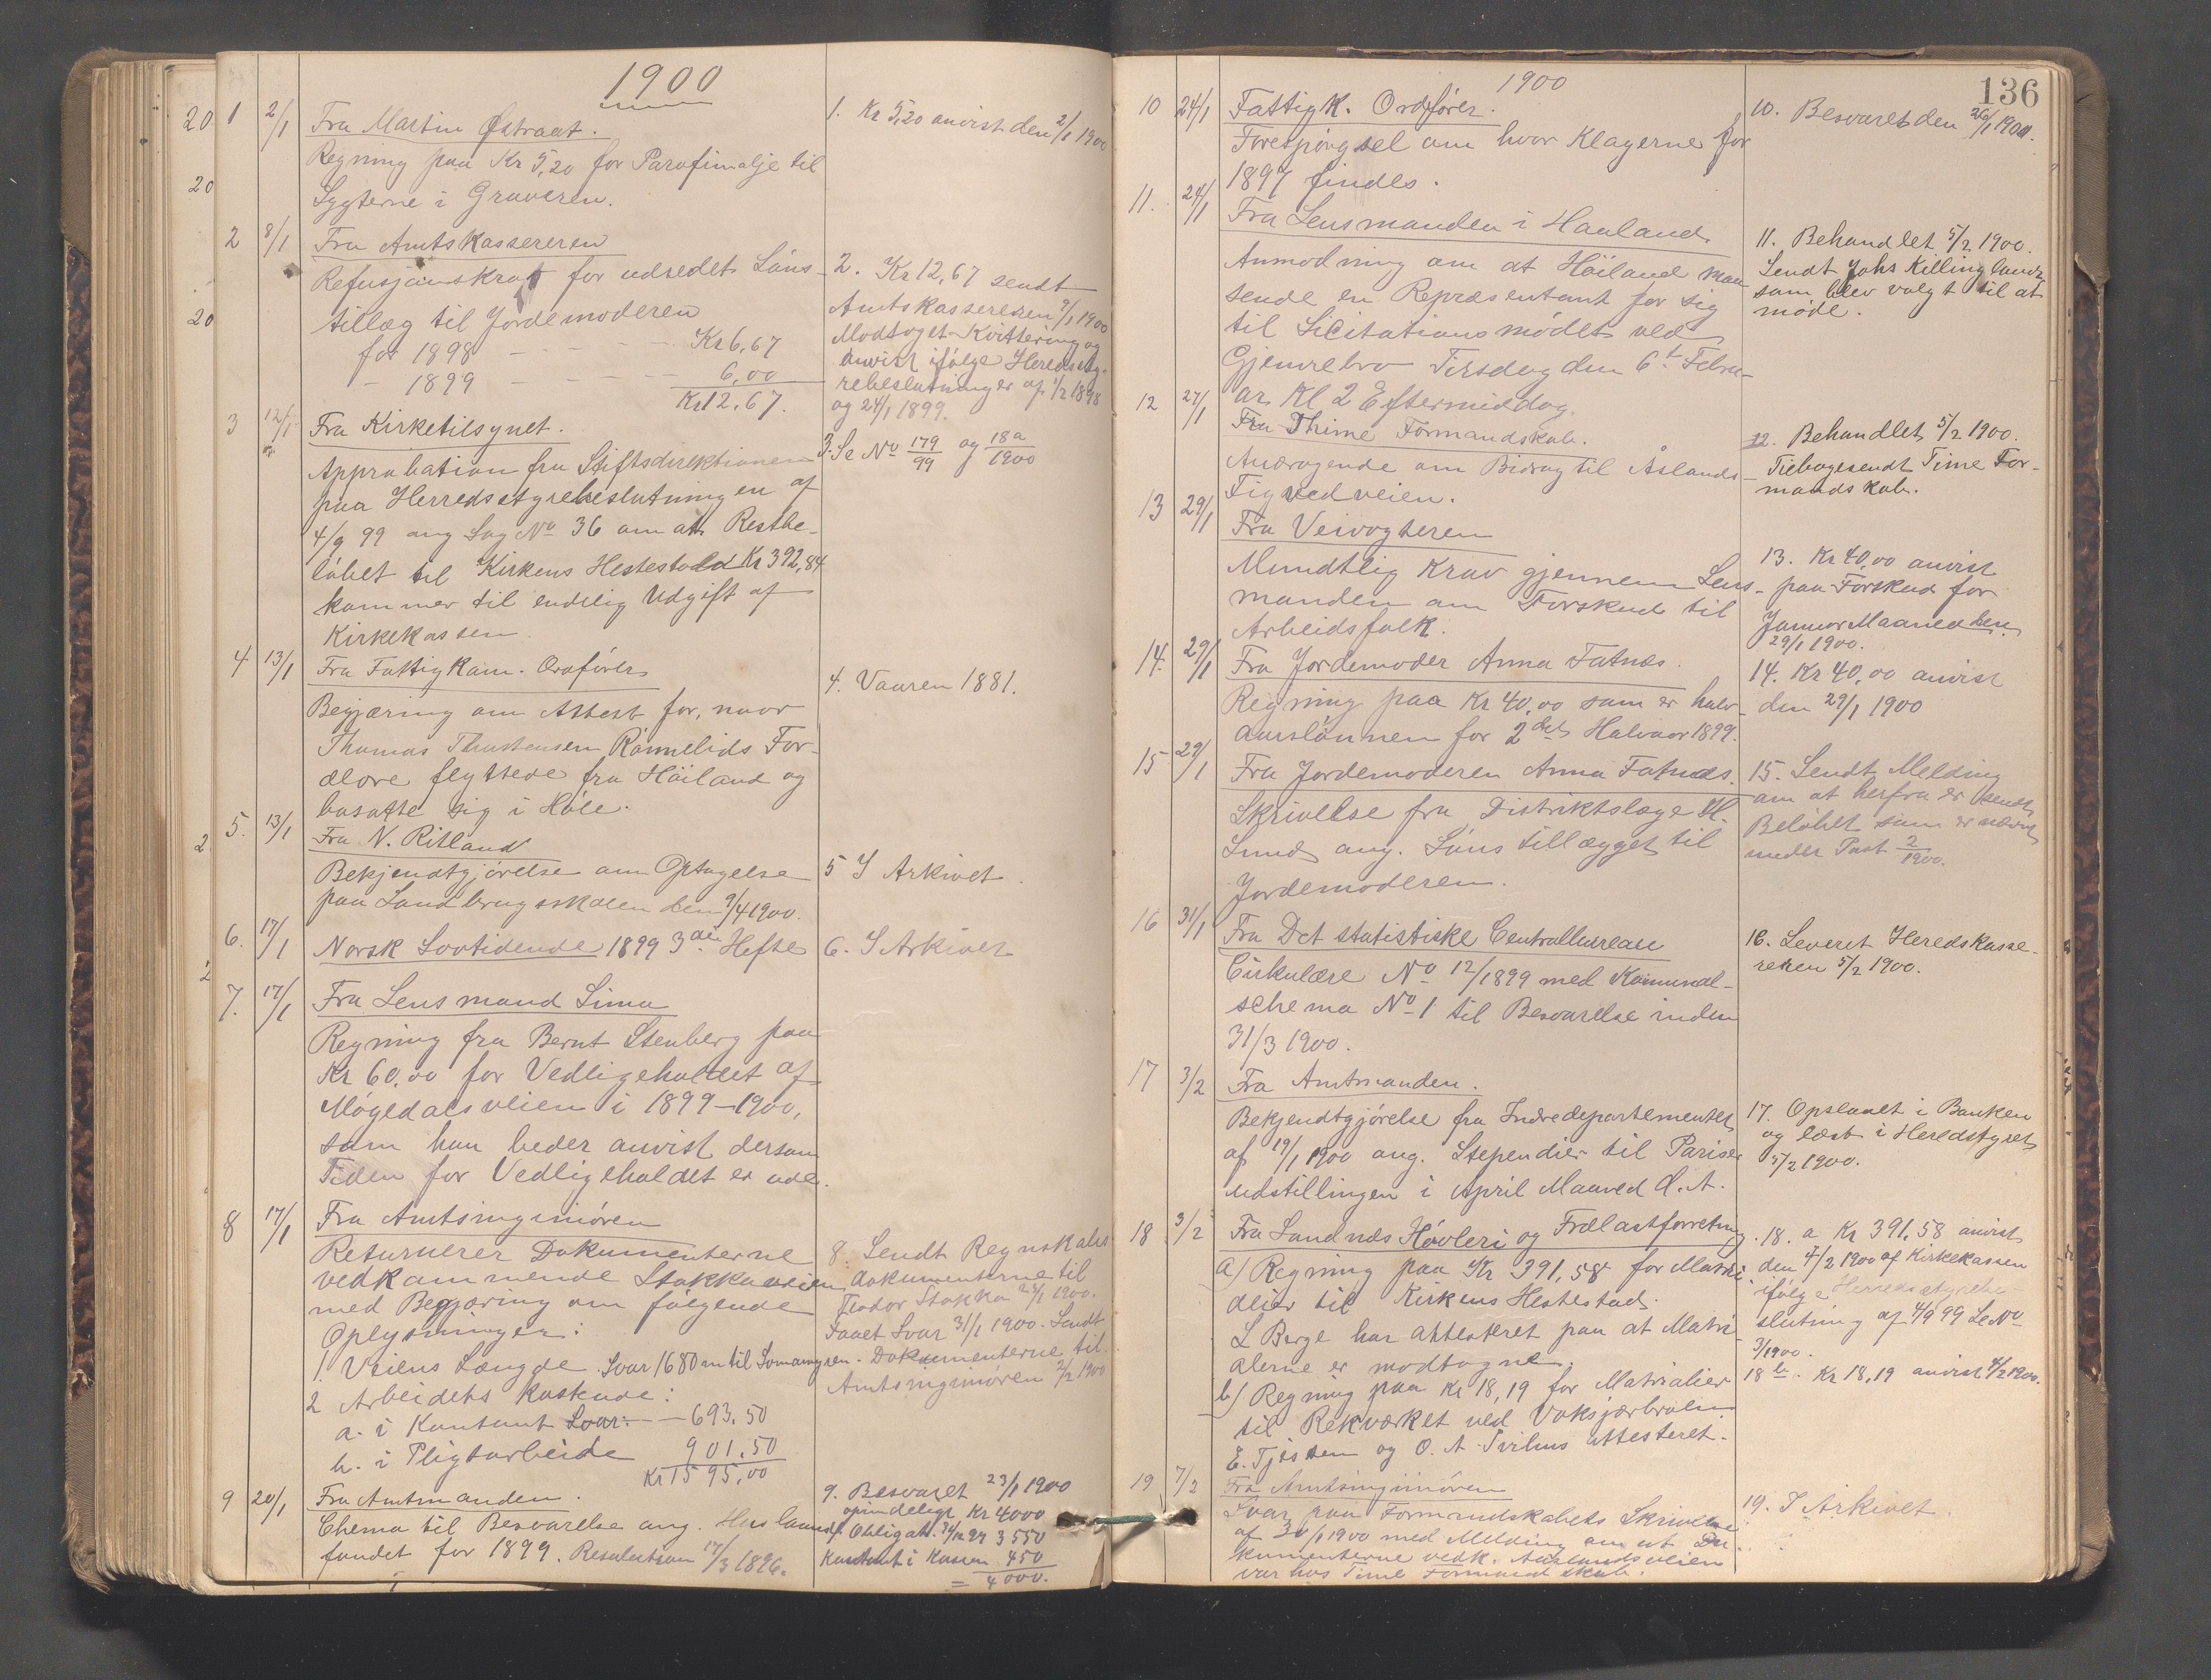 1900
1 2/1 Fra Martin Østraat.
Regning paa Kr 5,20 for Parafinolje til
Lygterne i Graveren.
1. Kr 5,20 anvist den 2/1 1900
2 8/1 Fra Amtskassereren
Refusjonskrav for udredet Løns-
tillæg til Jordemoderen
for 1898 - - - - Kr 6,67
- 1899 - - - - 6,00
Kr 12,67.
2. Kr 12,67 sendt
Amtskassereren 9/1 1900
Modtaget Kvittering og
anvist ifølge Heredssty-
rebeslutninger af 1/2 1898
og 24/1 1899.
3 12/1 Fra Kirketilsynet.
Approbation fra Stiftsdirektionen
paa Herredsstyrebeslutningen af
4/9 99 ang Sag No 36 om at Restbe-
løbet til Kirkens Hestestald Kr 392,84
kommer til endelig Udgift af
Kirkekassen.
3. Se No 179/99 og 18a/1900
4 13/1 Fra Fattigkom. Ordfører
Begjæring om Attest for, naar
Thomas Thorstensen Rommelids For-
ældre flyttede fra Høiland og
bosatte sig i Høle.
4. Vaaren 1881.
5. 13/1 Fra N. Ritland
Bekjendtgjørelse om Optagelse
paa Landbrugsskolen den 9/4 1900.
5 I Arkivet.
6. 17/1 Norsk Lovtidende 1899 3die Hefte
6. I Arkivet
7. 17/1 Fra Lensmand Lima
Regning fra Bernt Stenberg paa
Kr 60,00 for Vedligeholdet af
Møgedalsveien i 1899-1900,
som han beder anvist dersom
Tiden for Vedligeholdet er ude.
8 17/1 Fra Amtsinginiøren
Returnerer Dokumenterne
vedkommende Stokkaveien
med Begjæring om følgende
Oplysninger:
1. Veiens Længde. Svar 1680 m til Lomamyren.
2 Arbeidets Kostende:
a. i Kontant Svar: - - 693,50
b. i Pligtarbeide 901,50
Kr 1595,00
8 Sendt Regnskabs
dokumenterne til
Teodor Stokka 23/1 1900.
Faaet Svar 31/1 1900. Sendt
Dokumenterne til
Amtsinginiøren 2/2 1900
9 20/1 Fra Amtmanden.
Chema til Besvarelse ang. Huslaans
fondet for 1899. Resolution 17/3 1896.
9. Besvaret 23/1 1900
oprindeligt Kr 4000
Obligat. 3550
Kontant i Kassen 450
= 4000.
136
1900
10 24/1 Fattigk. Ordfører.
Forespørgsel om hvor Klagerne for
1897 findes.
10. Besvaret den 26/1 1900.
11. 24/1 Fra Lensmanden i Haaland
Anmodning om at Høiland maa
sende en Repræsentant for sig
til Licitationsmødet ved
Gjemrebro Tirsdag den 6t Febru-
ar Kl 2 Eftermiddag.
11. Behandlet 5/2 1900.
Sendt Johs Killingland
som blev valgt til at
møde.
12 27/1 Fra Thime Formandskab.
Andragende om Bidrag til Åslands-
Figvedveien.
12. Behandlet 5/2 1900.
Tilbagesendt Time For-
mandskab.
13 29/1 Fra Veivogteren
Mundtlig Krav gjennem Lens-
manden om Forskud til
Arbeidsfolk.
13. Kr 40,00 anvist
paa Forskud for
Januar Maaned den
29/1 1900.
14. 29/1 Fra Jordemoder Anna Fatnæs.
Regning paa Kr 40,00 som er halv-
aarslønnen for 2det Halvaar 1899.
14. Kr 40,00 anvist
den 29/1 1900
15 29/1 Fra Jordemoderen Anna Fatnæs.
Skrivelse fra Distriktslæge H.
Lund ang. Lønstillægget til
Jordemoderen.
15. Sendt Melding
om at herfra er sendt
Beløbet som er nævnt
under Post 2/1900.
16 31/1 Fra Det statistiske Centralbureau
Cirkulære No 12/1899 med Kommunal-
schema No 1 til Besvarelse inden
31/3 1900.
16. Leveret Heredskasse-
reren 5/2 1900.
17 3/2 Fra Amtmanden.
Bekjendtgjørelse fra Indredepartementet
af 19/1 1900 ang. Stependier til Pariser
udstillingen i April Maaned d. A.
17. Opslaaet i Banken
og læst i Heredstyret
5/2 1900.
18 3/2 Fra Sandnæs Høvleri og Trælastforretning.
a) Regning paa Kr 391,58 for Matri-
alier til Kirkens Hestestad.
L Berge har attesteret paa at Matri-
alerne er modtagne.
b) Regning paa Kr 18,19 for Matrialier
til Rekværket ved Voksjærbroen
E. Tjessem og O. A. Tvihus attesteret.
18. a Kr 391,58 anvist
den 7/2 1900 af Kirkekassen
ifølge Herredsstyrebe-
slutning af 4/9 99 Se No
3/1900.
18 b. Kr 18,19 anvist 7/2 1900.
19 7/2 Fra Amtsinginiøren
Svar paa Formandskabets Skrivelse
af 30/1 1900 med Melding om at Do-
kumenterne vedk. Aaslandsveien
var hos Time Formandskab.
19. I Arkivet.